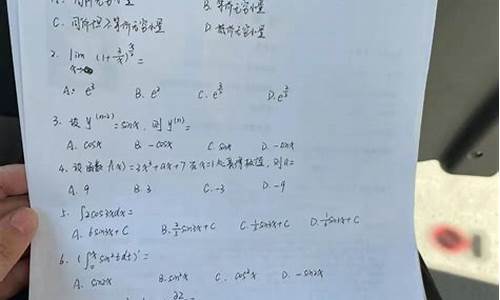 B. 等价无穷小量
C. 同阶但不等价无穷小量 D. 高阶无穷小量
2. lim x→∞ (1+ =
A. B. C. D.
3. 设 y⁽ⁿ⁻²⁾=sinx, 则 y⁽ⁿ⁾=
A. cosx B. -cosx C. sinx D. -sinx
4. 设函数 f(x)=2x³+ax+7 在x=1处取得极值, 则a=
A. 9 B. 3 C. -3 D. -9
5. ∫2cos3xdx=
A. 6sin3x+C B. 2/3 sin3x+C C. 1/3 sin3x+C D. sin3x+C
6. (∫₀ˣ sin²tdt)'=
A. sin2x B. sin²x C. cos²x D. -sin2x